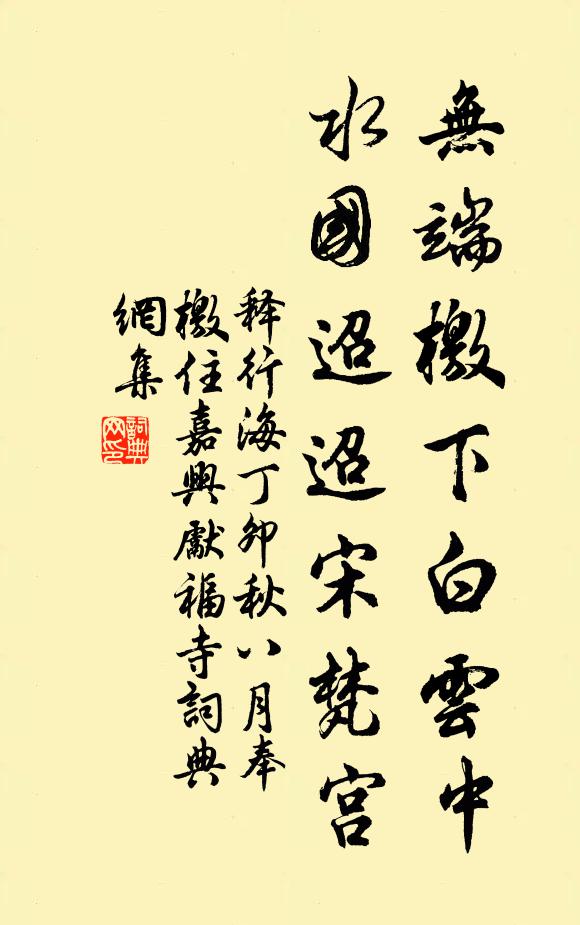 無端檄下白雲中
水國迢迢宋梵宮
释行海丁卯秋八月奉
檄住嘉興獻福寺詞典
網集
詞典
网印